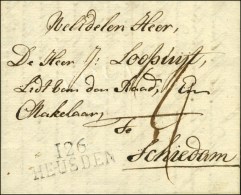 Weledelen Heer,
De Heer J: Loopuijt,
Lidt van den Raad, En
Makelaar,
Te
Schiedam
126
HEUSDEN